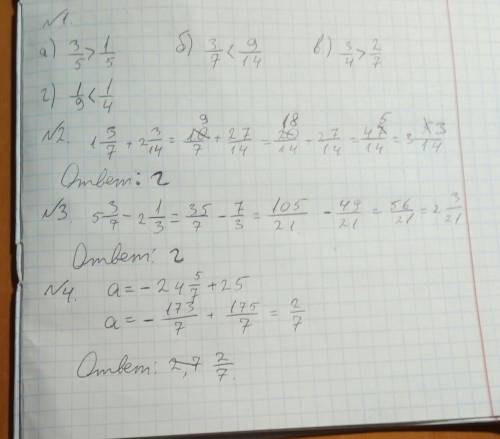 №1.
а) 3/5 > 1/5 б) 3/7 < 9/14 в) 3/4 > 2/7
г) 1/9 < 1/4
№2. 1 3/7 + 2 3/14 = 9/7 + 27/14 = 18/14 - 27/14 = 45/14 = 3 3/14
Ответ: г
№3. 5 3/7 - 2 1/3 = 35/7 - 7/3 = 105/21 - 49/21 = 56/21 = 2 3/21
Ответ: г
№4. a = - 24 5/7 + 25
a = - 173/7 + 175/7 = 2/7
Ответ: 2,7 2/7.